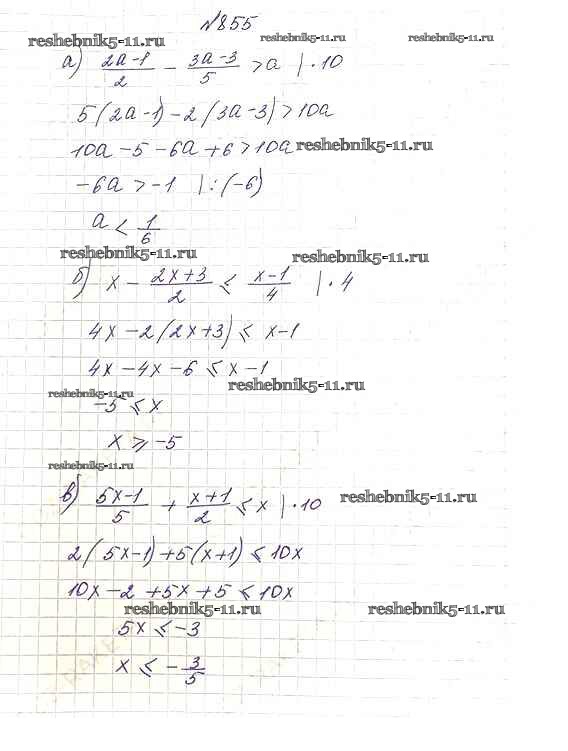 №855
reshebnik5-11.ru reshebnik5-11.ru reshebnik5-11.ru
а) (2a-1)/2 - (3a-3)/5 > a | ·10
5(2a-1)-2(3a-3)>10a
10a-5-6a+6>10a reshebnik5-11.ru
-6a>-1 |:(-6)
a < 1/6
reshebnik5-11.ru reshebnik5-11.ru
б) x - (2x+3)/2 ≤ (x-1)/4 | ·4
4x-2(2x+3) ≤ x-1
4x-4x-6 ≤ x-1
reshebnik5-11.ru
reshebnik5-11.ru
-5 ≤ x
x ≥ -5
reshebnik5-11.ru
в) (5x-1)/5 + (x+1)/2 ≤ x | ·10 reshebnik5-11.ru
2(5x-1)+5(x+1) ≤ 10x
10x-2+5x+5 ≤ 10x
reshebnik5-11.ru reshebnik5-11.ru
5x ≤ -3
x ≤ -3/5